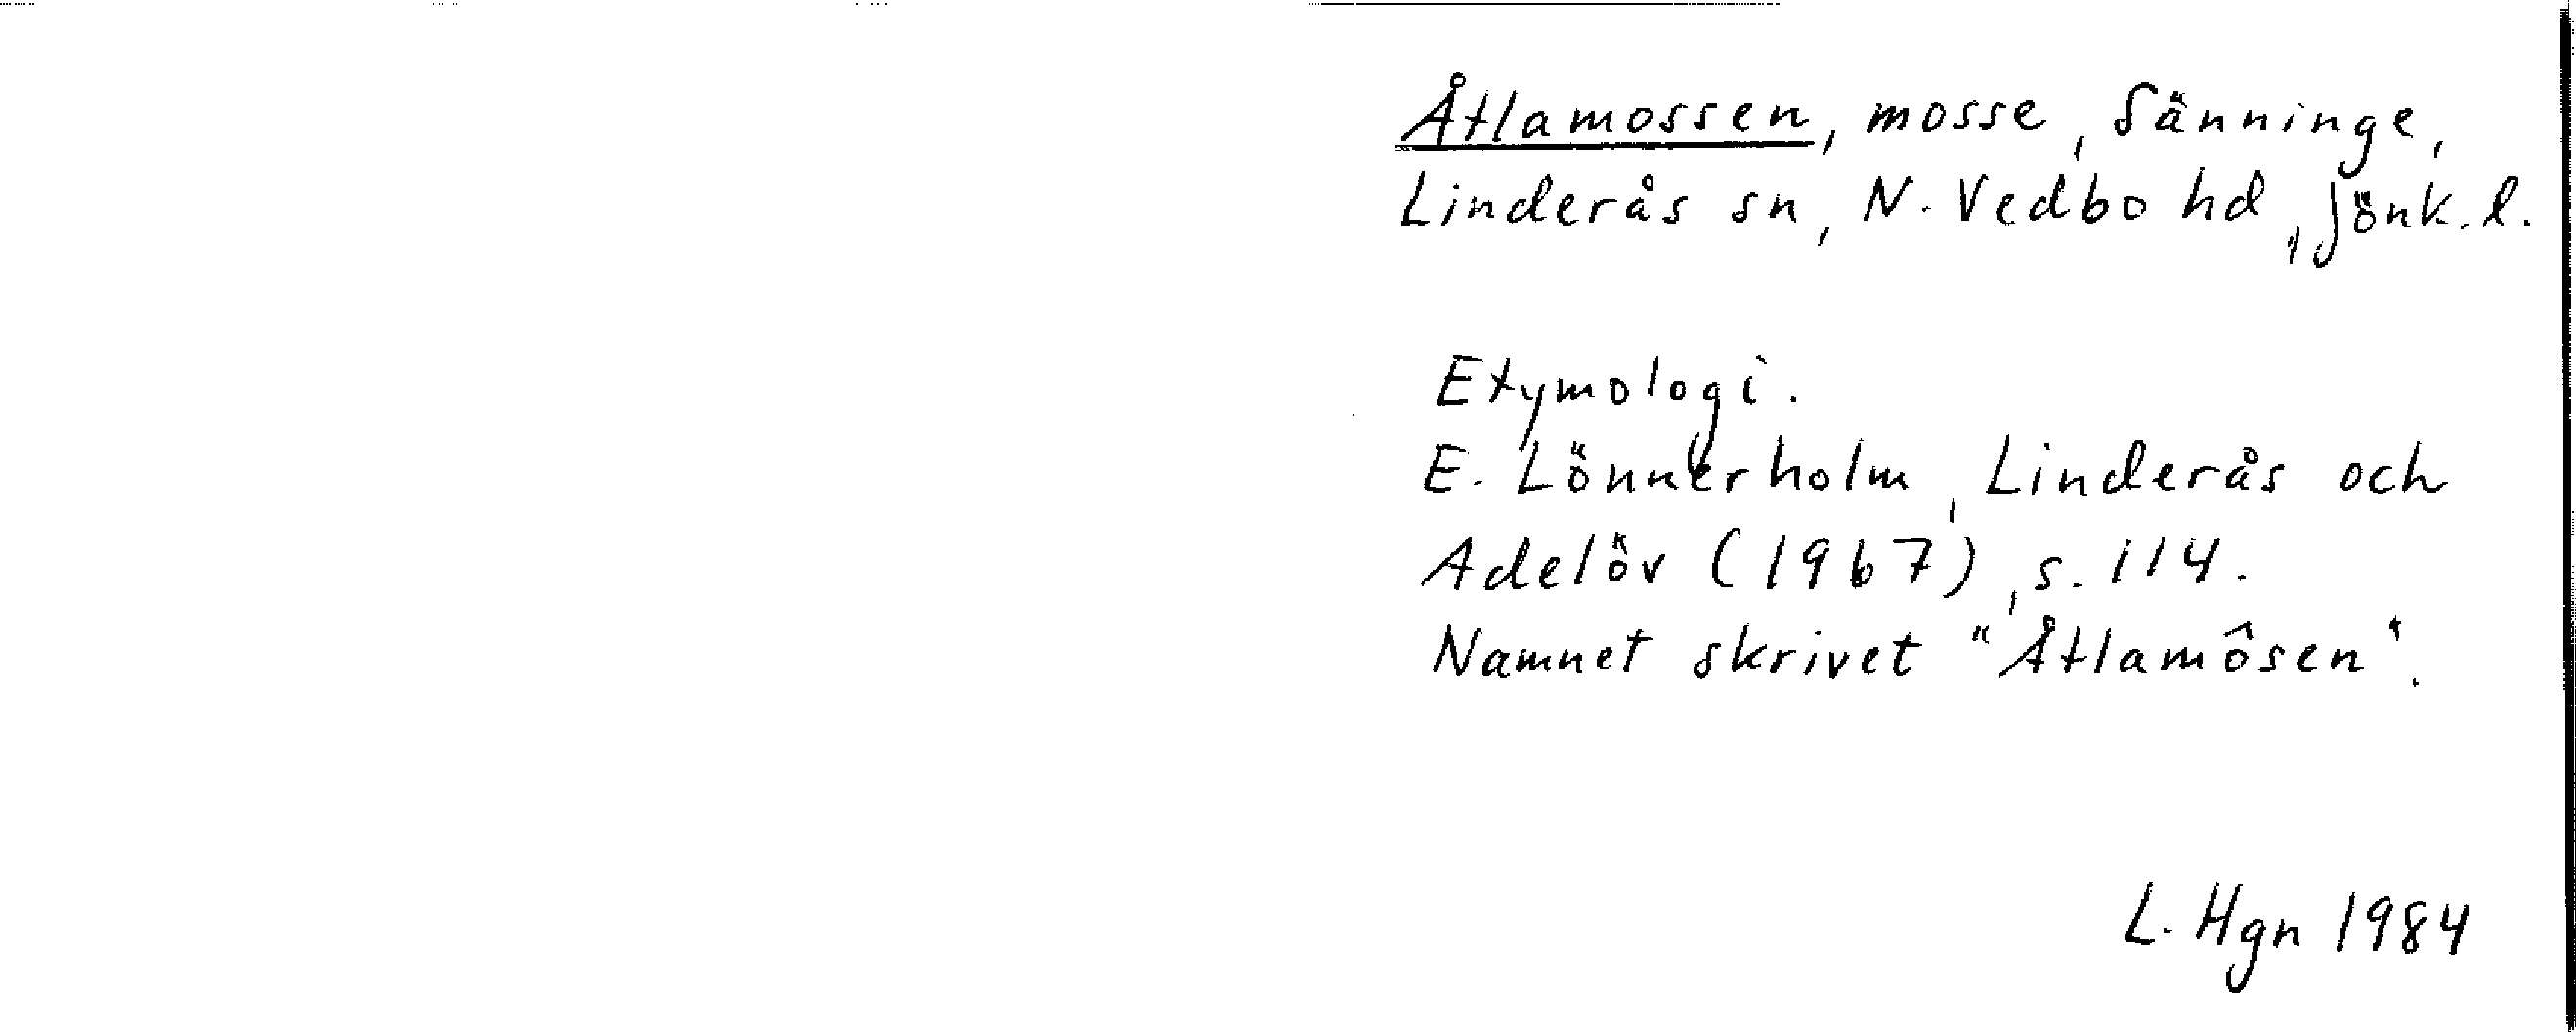 Åtlamossen, mosse, Sänninge,
Linderås sn, N. Vedbo hd, Jönk. l.
Etymologi.
E. Lönnerholm, Linderås och
Adelöv (1967), s. 114.
Namnet skrivet "Åtlamôsen".
L. Hgn 1984